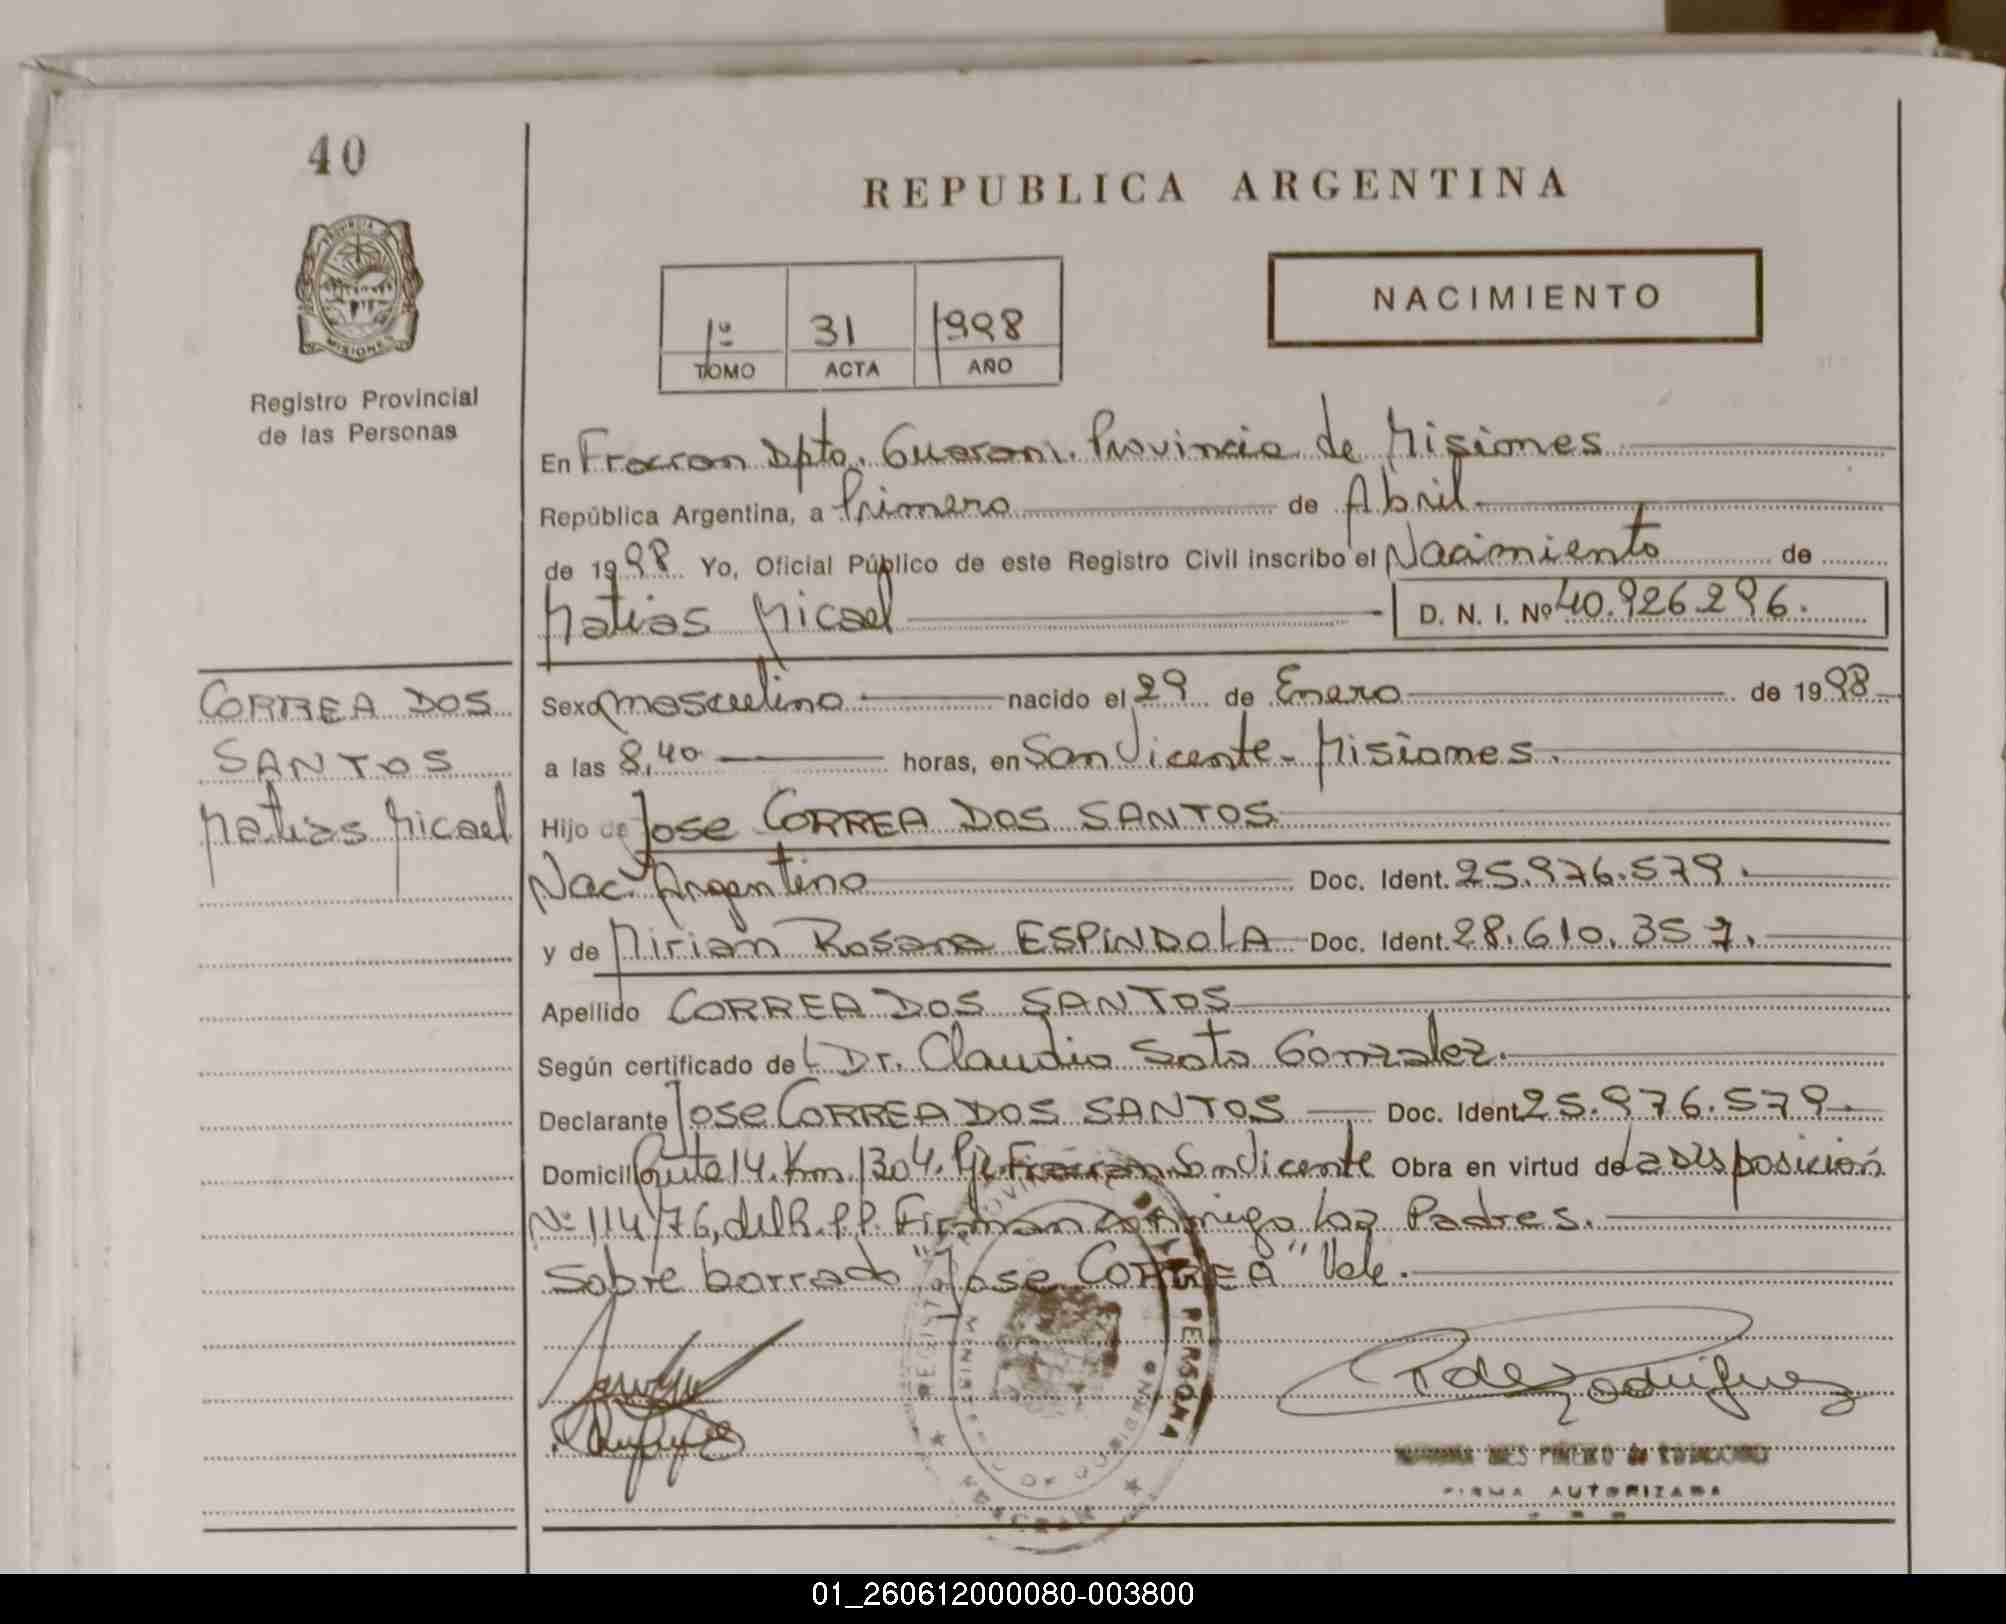 40
REPUBLICA ARGENTINA
PROVINCIA DE
MISIONES
Registro Provincial
de las Personas
1º 31 1998
TOMO ACTA AÑO
NACIMIENTO
En Fracran Dpto. Guarani. Provincia de Misiones
República Argentina, a Primero de Abril
de 1998 Yo, Oficial Público de este Registro Civil inscribo el Nacimiento de
Matias Micael D. N. I. Nº 40.926.296.
CORREA DOS
SANTOS
Matias Micael
Sexo masculino nacido el 29 de Enero de 1998
a las 8,40 horas, en San Vicente - Misiones.
Hijo de Jose CORREA DOS SANTOS
Nac. Argentino Doc. Ident. 25.976.579.
y de Mirian Rosana ESPINDOLA Doc. Ident. 28.610.357.
Apellido CORREA DOS SANTOS
Según certificado de L Dr. Claudio Soto Gonzalez.
Declarante Jose CORREA DOS SANTOS Doc. Ident. 25.976.579.
Domicilio Ruta 14. Km. 1304. Pje. Fracran. San Vicente Obra en virtud de La Disposición
Nº 114/76, del R.P.P. Firman conmigo los Padres.
Sobre borrado "Jose CORREA" Vale.
PERSONA
FRACRAN
Rodriguez
FIRMA AUTORIZADA
01_260612000080-003800